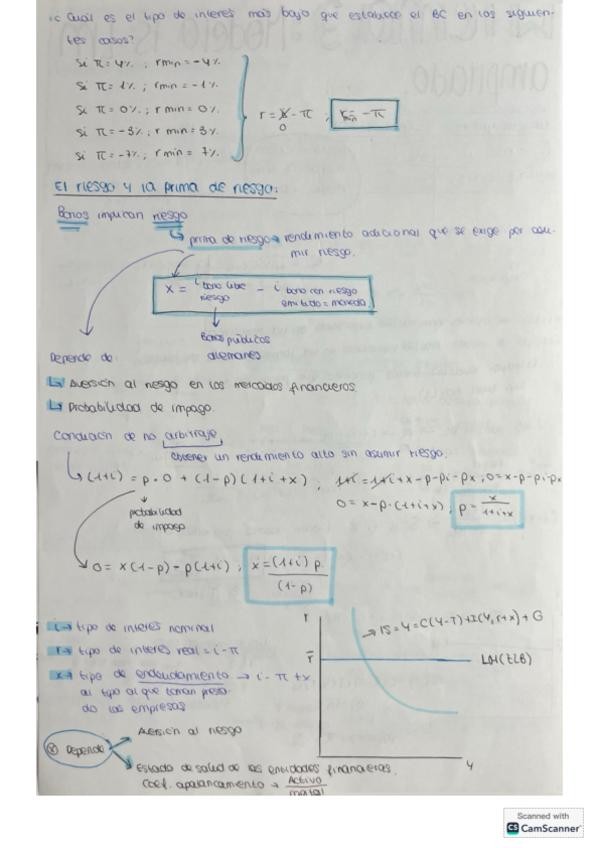 ¿Cuál es el tipo de interés más bajo que establece el BC en los siguien-
tes casos?
Si π=4%; rmin=-4%
Si π=1%; rmin=-1%
Si π=0%; rmin=0%.
Si π=-3%; r min=3%.
Si π=-7%; r min=7%.
r = i - π ; rmin = -π
0
El riesgo y la prima de riesgo:
Bonos implican riesgo
↳ prima de riesgo → rendimiento adicional que se exige por asu-
mir riesgo.
x = i bono libre riesgo - i bono con riesgo emitido = moneda.
↓
Bonos públicos
alemanes
Depende de:
↳ Aversión al riesgo en los mercados financieros.
↳ Probabilidad de impago.
Condición de no arbitraje
obtener un rendimiento alto sin asumir riesgo.
(1+i) = p·0 + (1-p)(1+i+x) ; 1+i = 1+i+x-p-pi-px ; 0=x-p-pi-px
probabilidad
de impago
0=x-p·(1+i+x) ; p= x/(1+i+x)
0= x(1-p)-p(1+i) ; x= (1+i) p/(1-p)
i → tipo de interés nominal
r → tipo de interés real = i-π
x → tipo de endeudamiento → i - π + x
al tipo al que toman presta-
do las empresas
r
r̄
→ IS = Y = C(Y-T)+I(Y, r+x)+G
LM(ELB)
Y
Depende
Aversión al riesgo
Estado de salud de las entidades financieras.
Coef. apalancamiento → Activo
Scanned with
CS CamScanner